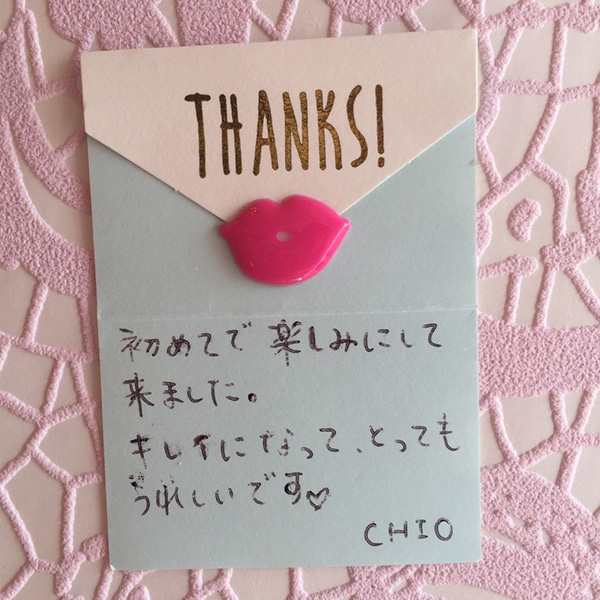 THANKS!
初めてで楽しみにして
来ました。
キレイになって、とっても
うれしいです♡
CHIO